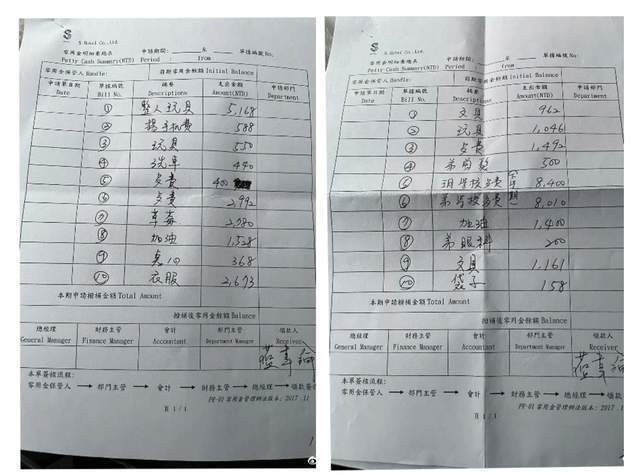 S Hotel Co.,Ltd.
零用金明細彙總表 申請期間: 至 單據編號No.
Petty Cash Summery(NTD) Period : from
零用金保管人 Handle: 前期零用金餘額 Initial Balance
申請單日期 單據編號 摘要 支出金額 申請部門
Date Bill No. Descriptions Amount(NTD) Department
① 整人玩具 5,168
② 手机費 588
③ 玩具 550
④ 洗車 440
⑤ 餐費 400
⑥ 餐費 2,992
⑦ 草莓 2,080
⑧ 加油 1,528
⑨ 368
⑩ 衣服 2,673
本期申請撥補金額 Total Amount
撥補後零用金餘額 Balance
總經理 財務主管 會計 部門主管 領款人
General Manager Finance Manager Accountant Department Manager Receiver
本單簽核流程:
零用金保管人 → 部門主管 → 會計 → 財務主管 → 總經理 → 領款簽
PR-01 零用金管理辦法版本: 2017.11
頁 1/1
S Hotel Co.,Ltd.
零用金明細彙總表 申請期間: 至 單據編號 No:
Petty Cash Summery(NTD) Period : from
零用金保管人 Handle: 前期零用金餘額 Initial Balance
申請單日期 單據編號 摘要 支出金額 申請部門
Date Bill No. Descriptions Amount(NTD) Department
① 文具 962
② 玩具 1,046
③ 餐費 1,492
④ 500
⑤ 8,400
⑥ 8,010
⑦ 加油 1,400
⑧ 200
⑨ 文具 1,161
⑩ 袋子 158
本期申請撥補金額 Total Amount
撥補後零用金餘額 Balance
總經理 財務主管 會計 部門主管 領款人
General Manager Finance Manager Accountant Department Manager Receiver
本單簽核流程:
零用金保管人 → 部門主管 → 會計 → 財務主管 → 總經理 → 領款
PR-01 零用金管理辦法版本: 2017.11
頁 1/1